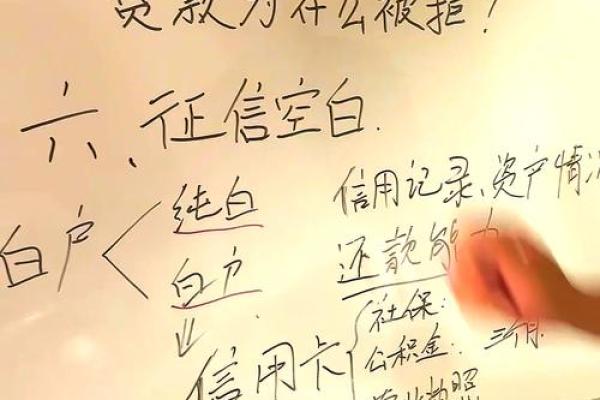 贷款为什么被拒?
六、征信空白.
白户 纯白
白户
信用记录、资产情况
还款能力
信用卡
社保:
公积金: 三个月
营业执照